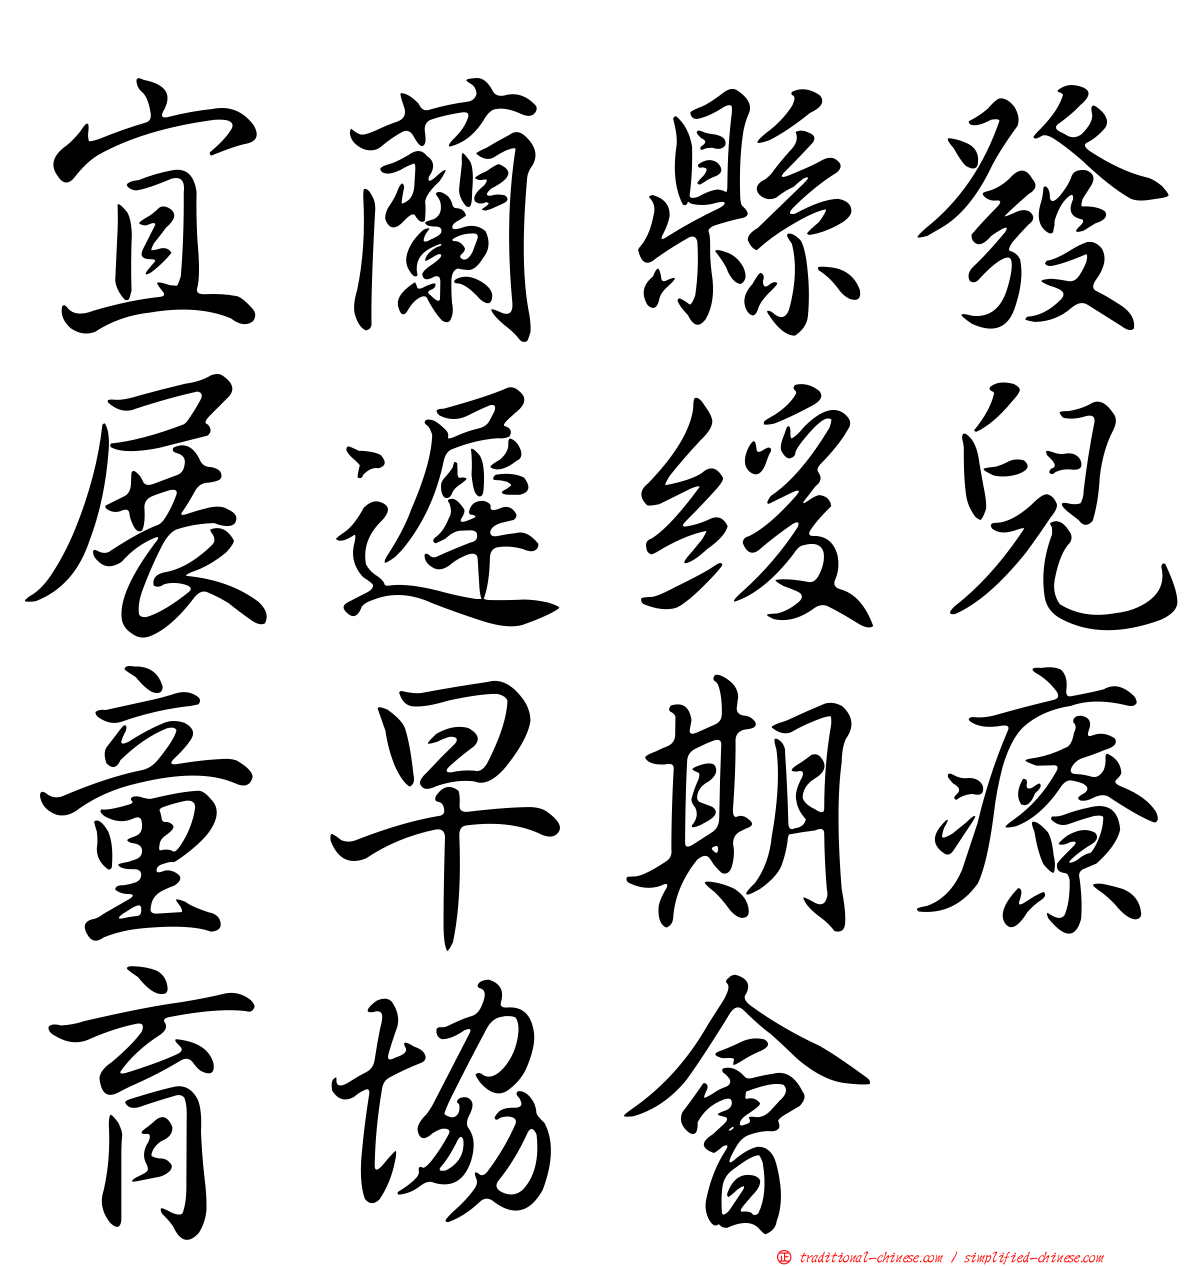 宜蘭縣發
展遲緩兒
童早期療
育協會
正 traditional-chinese.com / simplified-chinese.com